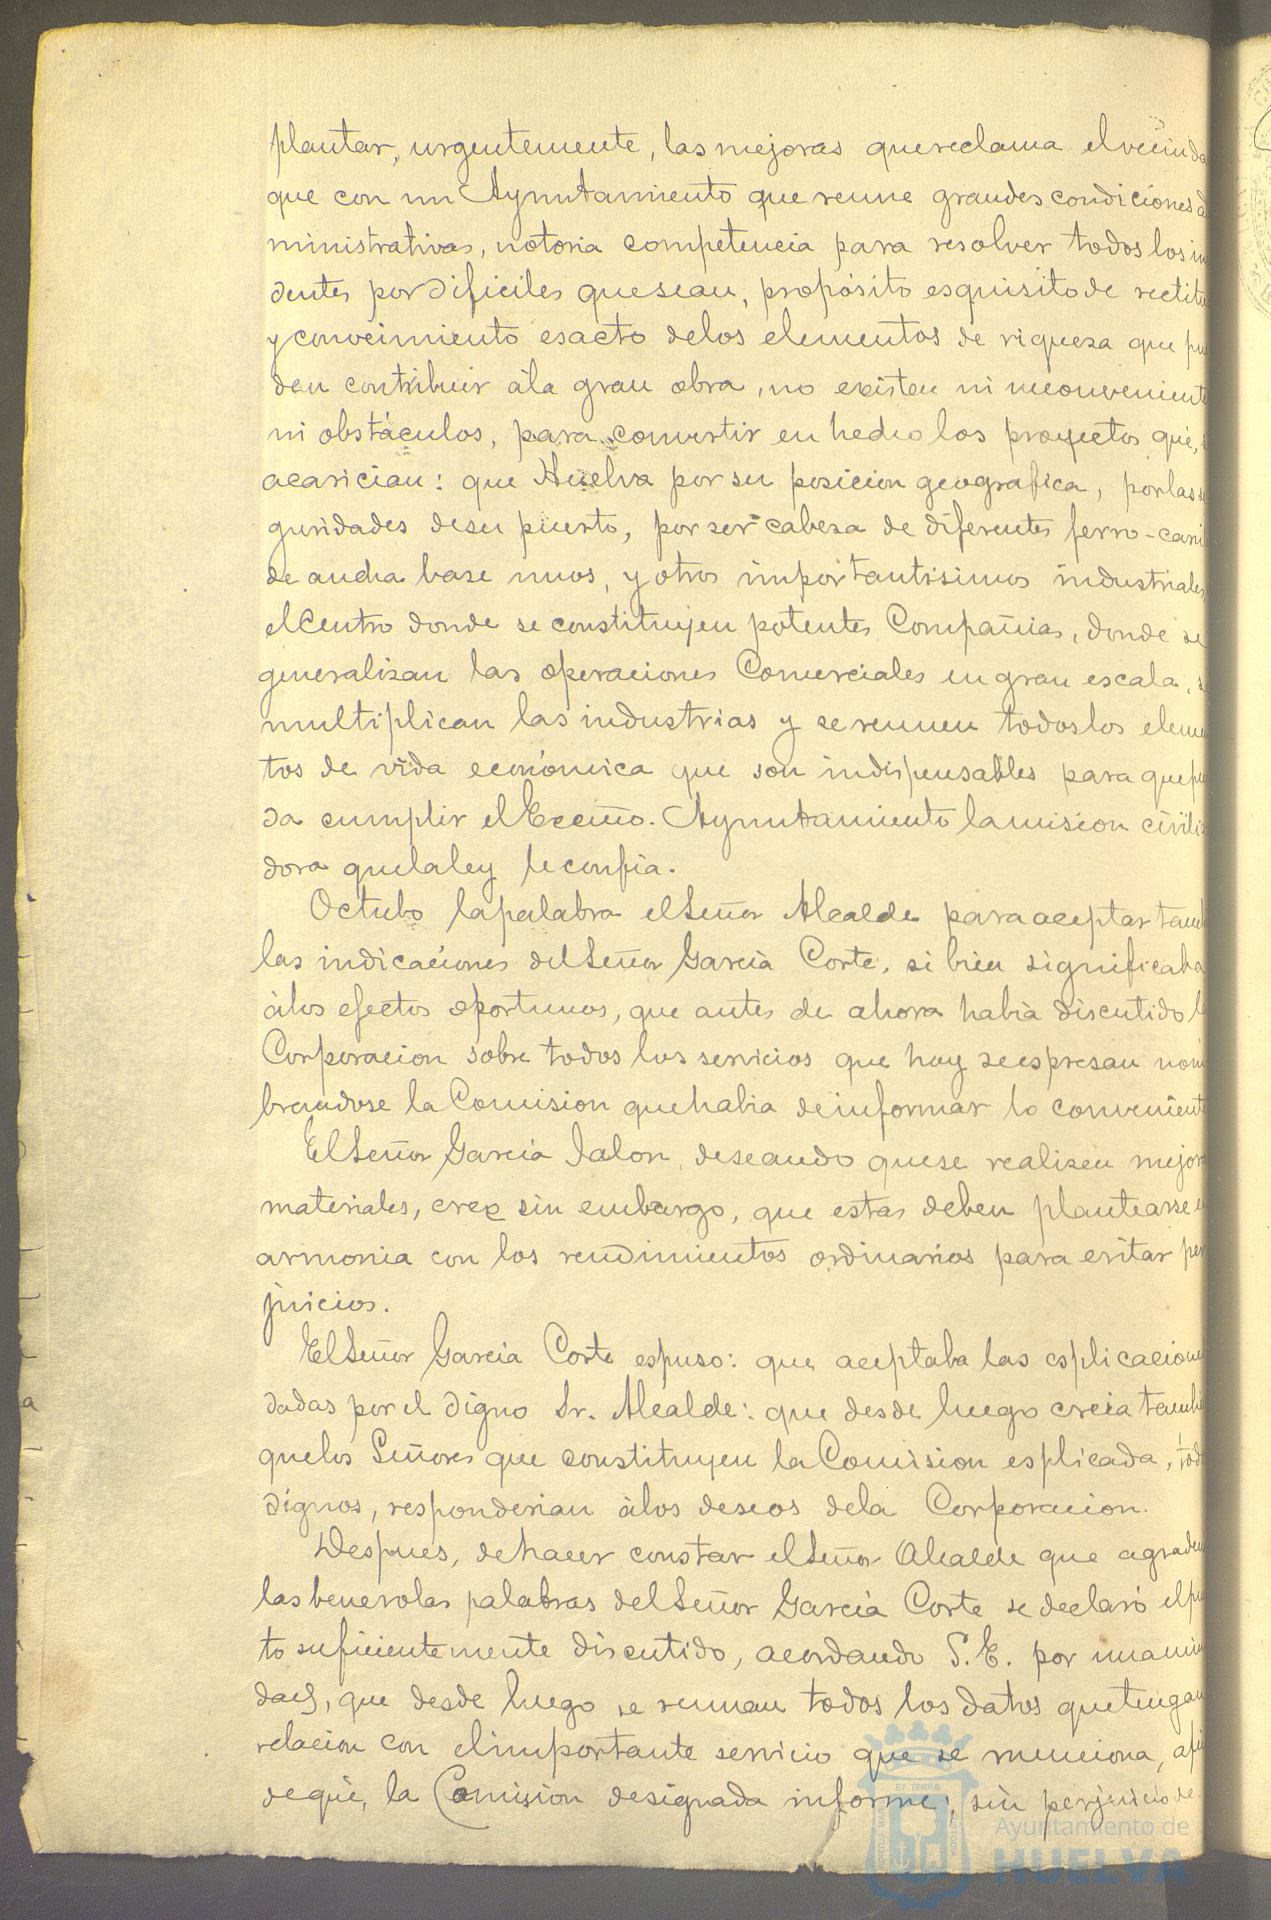 plantar, urgentemente, las mejoras que reclama el vecinda
que con un Ayuntamiento que reune grandes condiciones ad
ministrativas, notoria competencia para resolver todos los in
dentes por dificiles que sean, propósito esquisito de rectitu
y conocimiento esacto de los elementos de riquesa que pue
den contribuir á la gran obra, no existen ni inconveniente
ni obstáculos, para convertir en hecho los proyectos que, s
acarician: que Huelva por su posicion geografica, por las se
guridades de su puerto, por ser cabesa de diferentes ferro-carril
de ancha base unos, y otros importantisimos industriales,
el Centro donde se constituyen potentes Compañias, donde se
generalisan las operaciones Comerciales en gran escala, s
multiplican las industrias y se reunen todos los elemen
tos de vida económica que son indispensables para que pue
da cumplir el Eccmo. Ayuntamiento la mision civilis
dora que la ley le confia.
Octubo la palabra el Señor Alcalde para aceptar tamb
las indicaciones del Señor Garcia Corte, si bien significaba
á los efectos oportunos, que antes de ahora habia discutido l
Corporacion sobre todos los servicios que hoy se espresan nom
brandose la Comision que habia de informar lo conveniente
El Señor Garcia Jalon, deseando que se realisen mejora
materiales, cree sin embargo, que estas deben plantearse en
armonia con los rendimientos ordinarios para evitar per
juicios.
El Señor Garcia Corte espuso: que aceptaba las esplicacione
dadas por el digno Sr. Alcalde: que desde luego creia tambi
que los Señores que constituyen la Comision esplicada, tod
dignos, responderian á los deseos de la Corporacion.
Despues, de hacer constar el Señor Alcalde que agradec
las benevolas palabras del Señor Garcia Corte se declaró el pun
to suficientemente discutido, acordando S.E. por unanimi
dad, que desde luego se reunan todos los datos que tengan
relacion con el importante servicio que se menciona, afin
de que, la Comision designada informe; sin perjuicio de
Ayuntamiento de
HUELVA